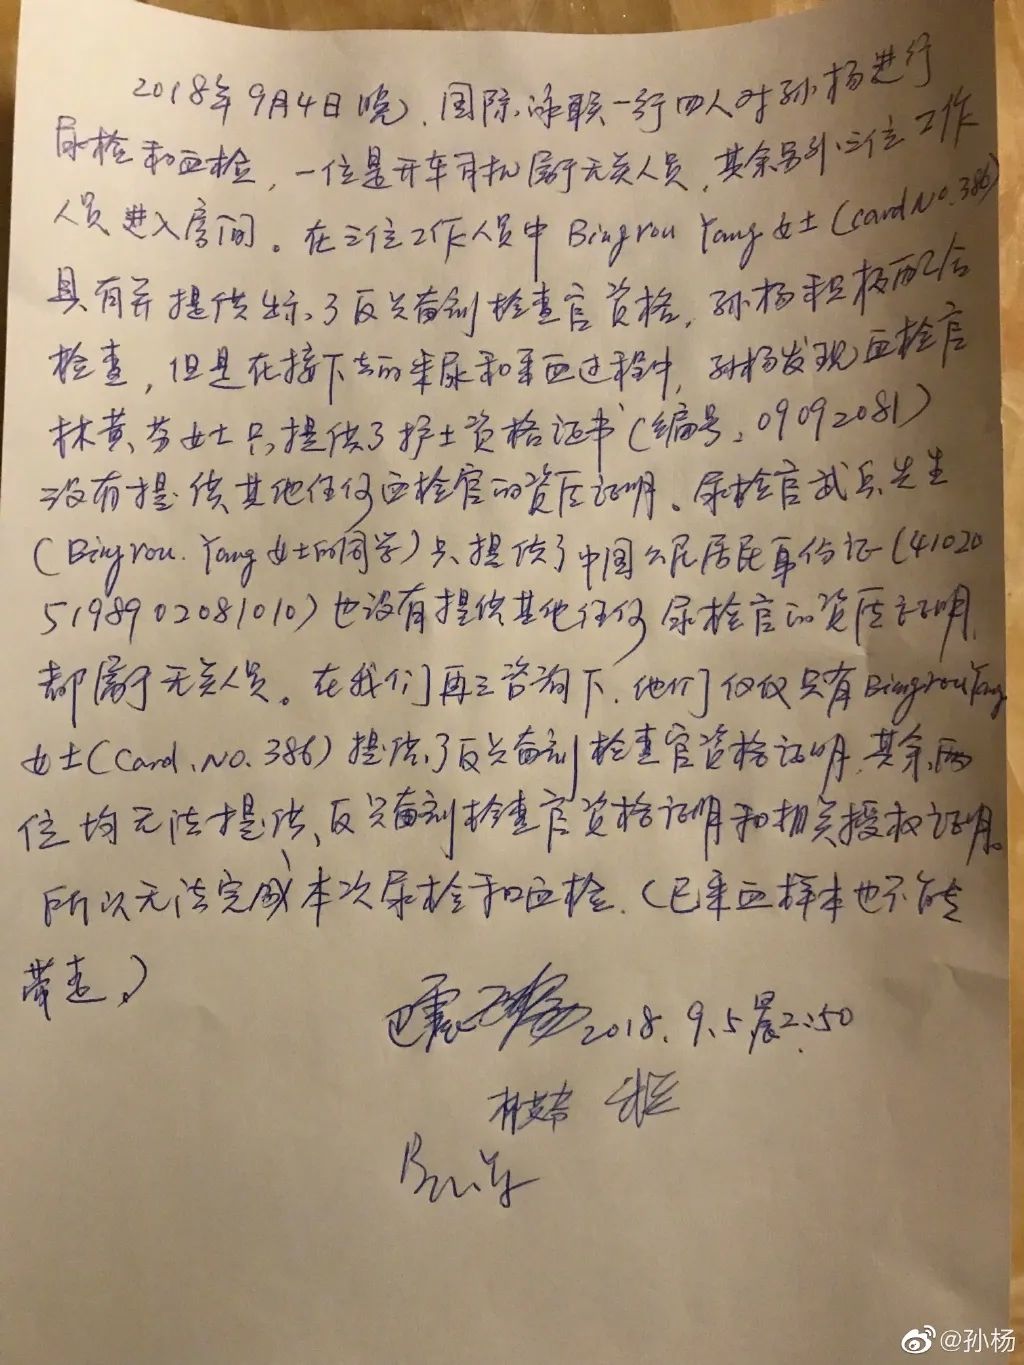 2018年9月4日晚、国际泳联一行四人对孙杨进行
尿检和血检，一位是开车司机属于无关人员，其余另外三位工作
人员进入房间。在三位工作人员中 Bingrou Yang 女士(card No.386)
具有并提供出示了反兴奋剂检查官资格，孙杨积极配合
检查，但是在接下去的采尿和采血过程中，孙杨发现血检官
林黄芬女士只提供了护士资格证书(编号：09092081)
没有提供其他任何血检官的资历证明。尿检官武兵先生
(Bingrou. Yang女士的同学)只提供了中国公民居民身份证(41020
5198902081010)也没有提供其他任何尿检官的资历证明，
都属于无关人员。在我们再三咨询下，他们仅仅只有Bingrou Yang
女士(Card.No.386)提供了反兴奋剂检查官资格证明，其余两
位均无法提供、反兴奋剂检查官资格证明和相关授权证明。
所以无法完成本次尿检和血检.(已采血样本也不能
带走。)
巴震 2018.9.5晨2:50
@孙杨